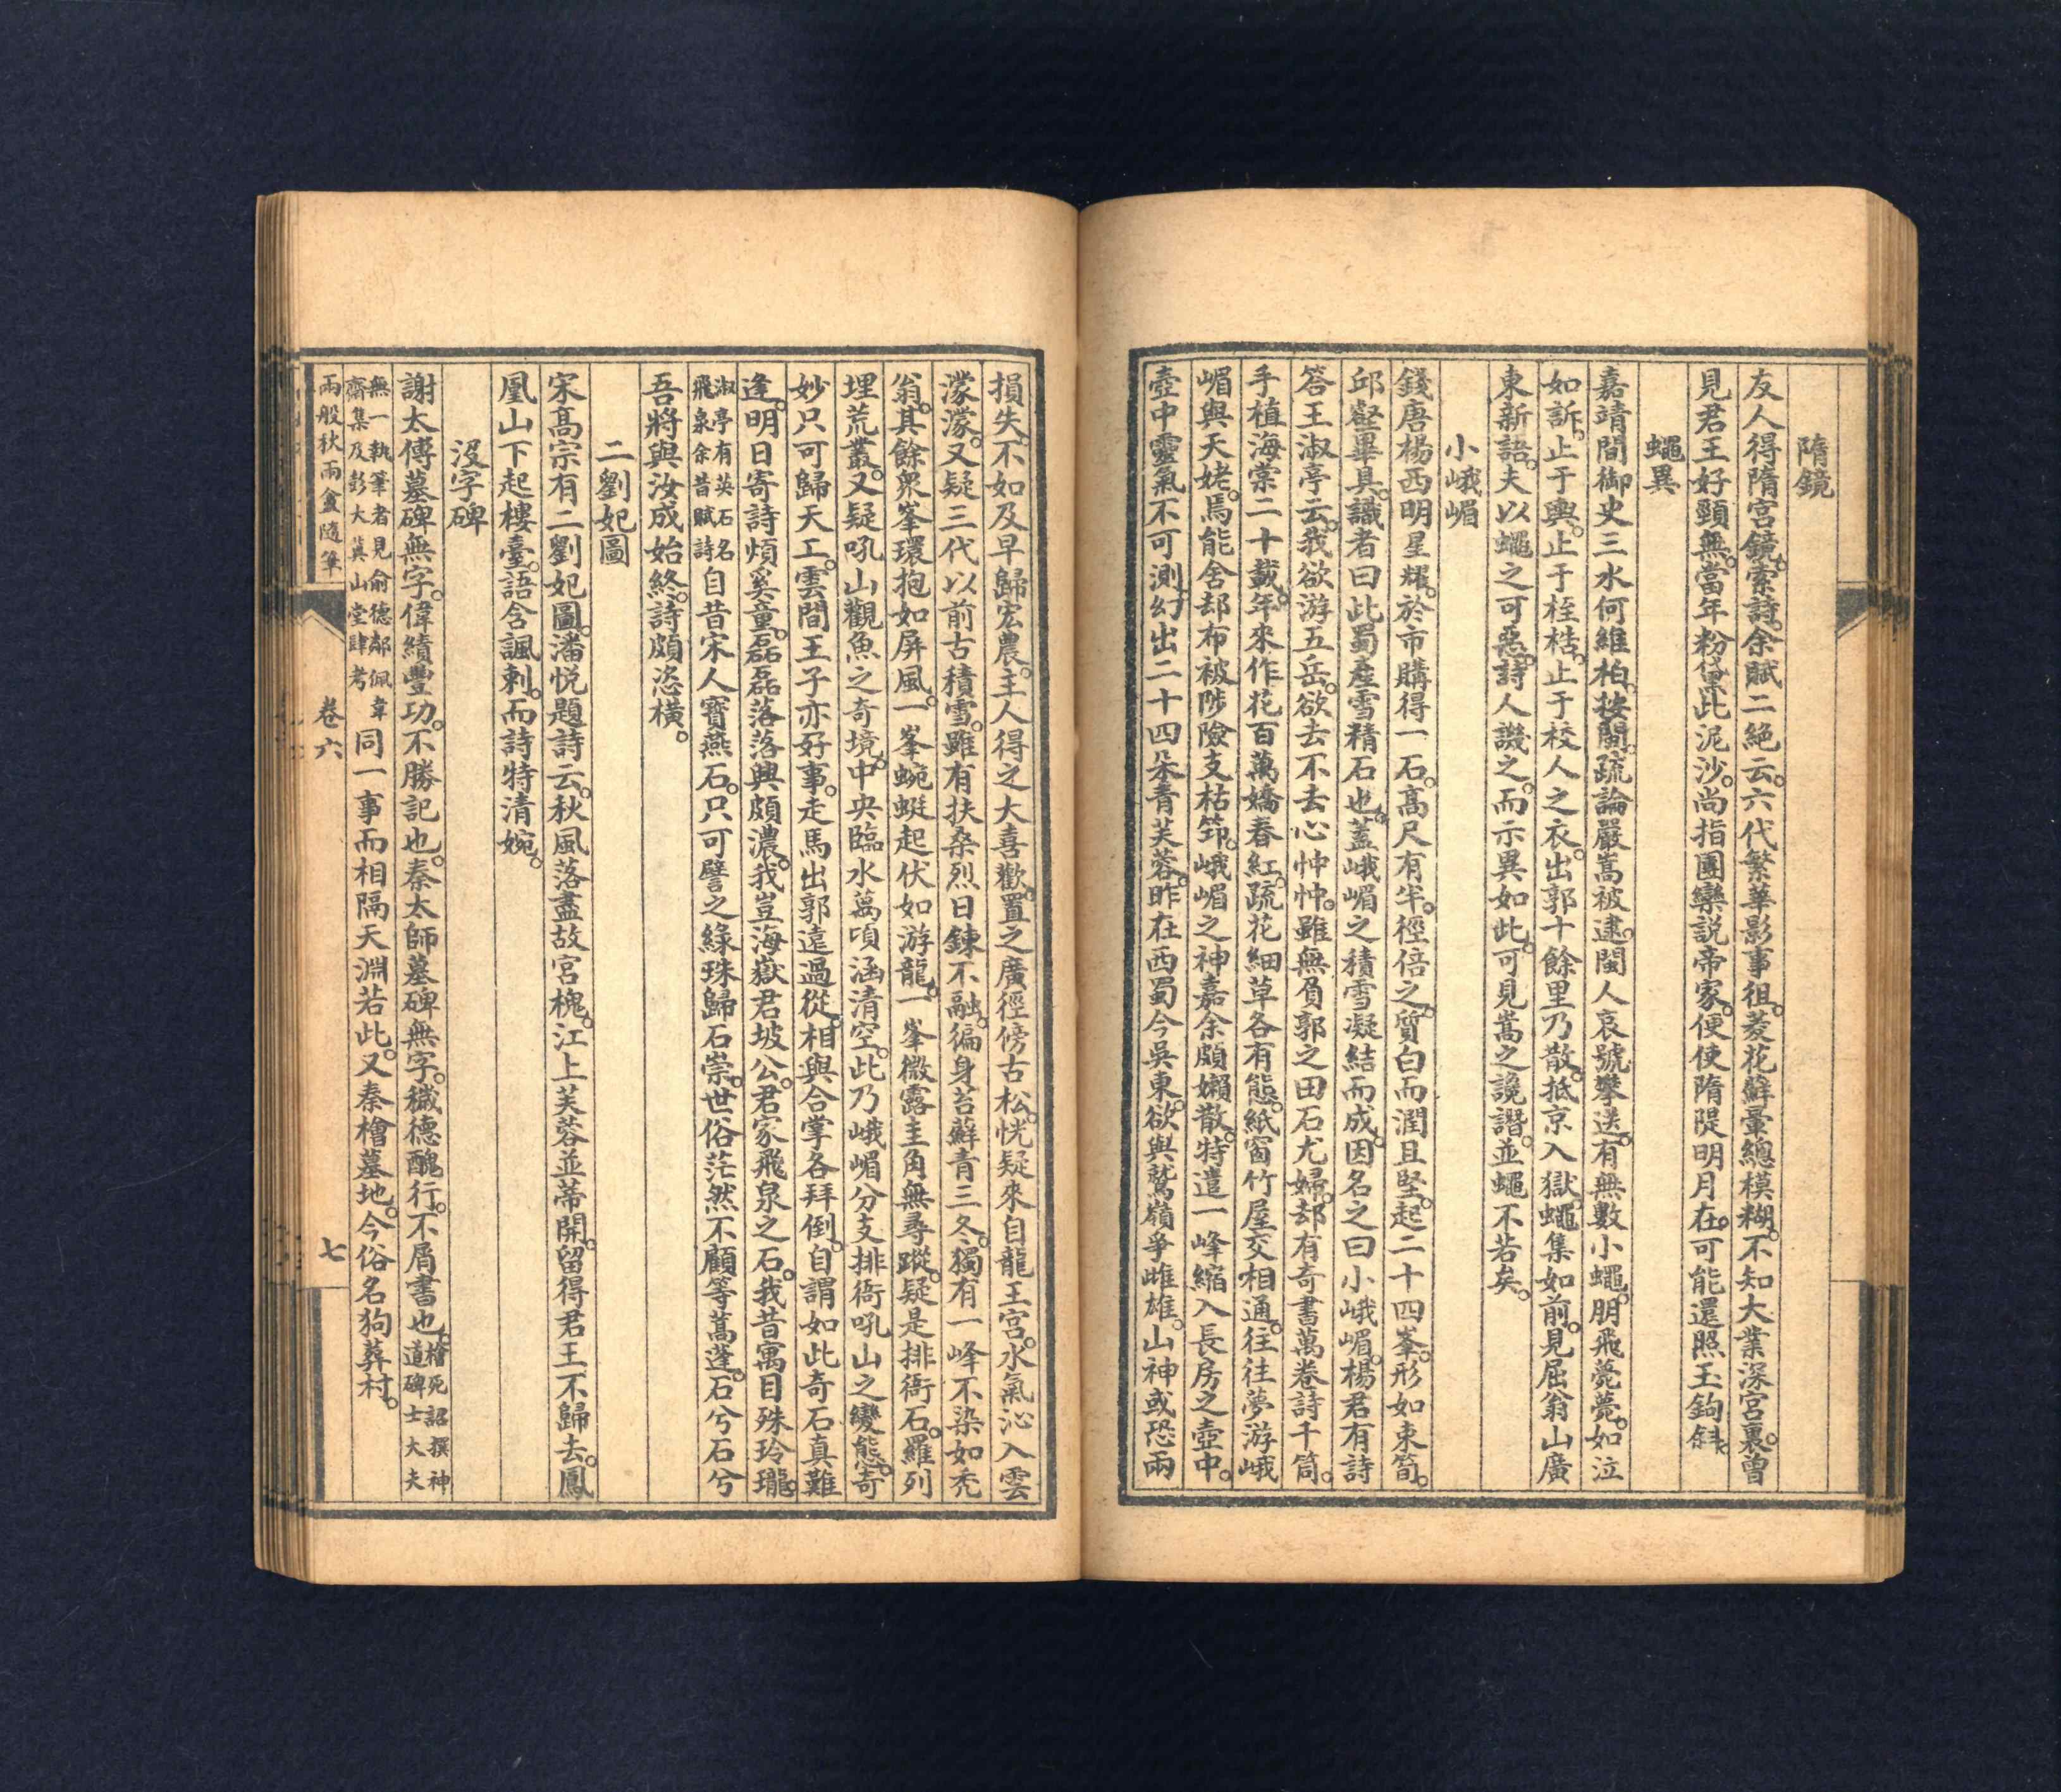 隋鏡
友人得隋宮鏡。索詩。余賦二絕云。六代繁華影事徂。菱花蘚暈總模糊。不知大業深宮裏。曾
見君王好頸無。當年粉黛此泥沙。尚指團欒說帝家。便使隋隄明月在。可能還照玉鉤斜。
蠅異
嘉靖間御史三水何維柏。按閩。疏論嚴嵩被逮。閩人哀號攀送。有無數小蠅。朋飛薨薨。如泣
如訴。止于輿。止于桎梏。止于校人之衣。出郭十餘里乃散。抵京入獄。蠅集如前。見屈翁山廣
東新語。夫以蠅之可惡。詩人譏之。而示異如此。可見嵩之讒譖。並蠅不若矣。
小峨嵋
錢唐楊西明星耀。於市購得一石。高尺有半。徑倍之。質白而潤且堅。起二十四峯。形如束筍。
邱壑畢具。識者曰此蜀產雪精石也。蓋峨嵋之積雪凝結而成。因名之曰小峨嵋。楊君有詩
答王淑亭云。我欲游五岳。欲去不去心忡忡。雖無負郭之田石尤婦。却有奇書萬卷詩千筒。
手植海棠二十載。年來作花百萬嬌春紅。疏花細草各有態。紙窗竹屋交相通。往往夢游峨
嵋與天姥。焉能舍却布被陟險支枯筇。峨嵋之神嘉余頗懶散。特遣一峰縮入長房之壺中。
壺中靈氣不可測。幻出二十四朵青芙蓉。昨在西蜀今吳東。欲與鷲嶺爭雌雄。山神或恐兩
損失。不如及早歸宏農。主人得之大喜歡。置之廣徑傍古松。恍疑來自龍王宮。水氣沁入雲
濛濛。又疑三代以前古積雪。雖有扶桑烈日鍊不融。徧身苔蘚青三冬。獨有一峰不染如禿
翁。其餘眾峯環抱如屏風。一峯蜿蜒起伏如游龍。一峯微露圭角無尋蹤。疑是排衙石。羅列
埋荒叢。又疑吼山觀魚之奇境。中央臨水萬頃涵清空。此乃峨嵋分支排衙吼山之變態。奇
妙只可歸天工。雲間王子亦好事。走馬出郭遠過從。相與合掌各拜倒。自謂如此奇石真難
逢。明日寄詩煩奚童。磊磊落落興頗濃。我豈海嶽君坡公。君家飛泉之石。我昔寓目殊玲瓏。
淑亭有英石名飛泉余昔賦詩自昔宋人寶燕石。只可譬之綠珠歸石崇。世俗茫然不顧等蒿蓬。石兮石兮
吾將與汝成始終。詩頗恣橫。
二劉妃圖
宋高宗有二劉妃圖。潘悅題詩云。秋風落盡故宮槐。江上芙蓉並蒂開。留得君王不歸去。鳳
凰山下起樓臺。語含諷刺。而詩特清婉。
沒字碑
謝太傅墓碑無字。偉績豐功。不勝記也。秦太師墓碑無字。穢德醜行。不屑書也。檜死詔撰神道碑士大夫
無一執筆者見俞德鄰佩韋齋集及彭大翼山堂肆考同一事而相隔天淵若此。又秦檜墓地。今俗名狗葬村。
兩般秋雨盦隨筆 卷六 七